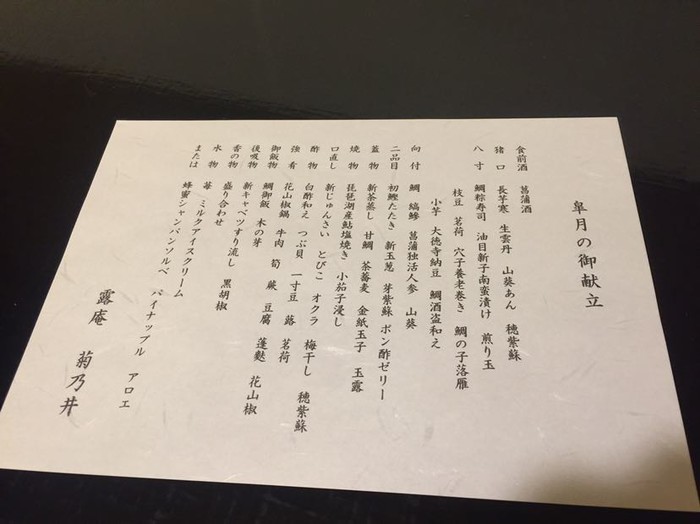 皐月の御献立
食前酒 菖蒲酒
猪口 長芋寒 生雲丹 山葵あん 穂紫蘇
八寸 鯛粽寿司 油目新子南蛮漬け 煎り玉
枝豆 茗荷 穴子養老巻き 鯛の子落雁
小芋 大徳寺納豆 鯛酒盗和え
向付 鯛 縞鯵 菖蒲独活人参 山葵
二品目 初鰹たたき 新玉葱 芽紫蘇 ポン酢ゼリー
蓋物 新茶蒸し 甘鯛 茶蕎麦 金紙玉子 玉露
焼物 琵琶湖産鮎塩焼き 小茄子浸し
口直し 新じゅんさい とびこ オクラ 梅干し 穂紫蘇
酢物 白酢和え つぶ貝 一寸豆 蕗 茗荷
強肴 花山椒鍋 牛肉 筍 蕨 豆腐 蓬麩 花山椒
御飯物 鯛御飯 木の芽
後吸物 新キャベツすり流し 黒胡椒
香の物 盛り合わせ
水物 苺 ミルクアイスクリーム
または 蜂蜜シャンパンソルベ パイナップル アロエ
露庵 菊乃井